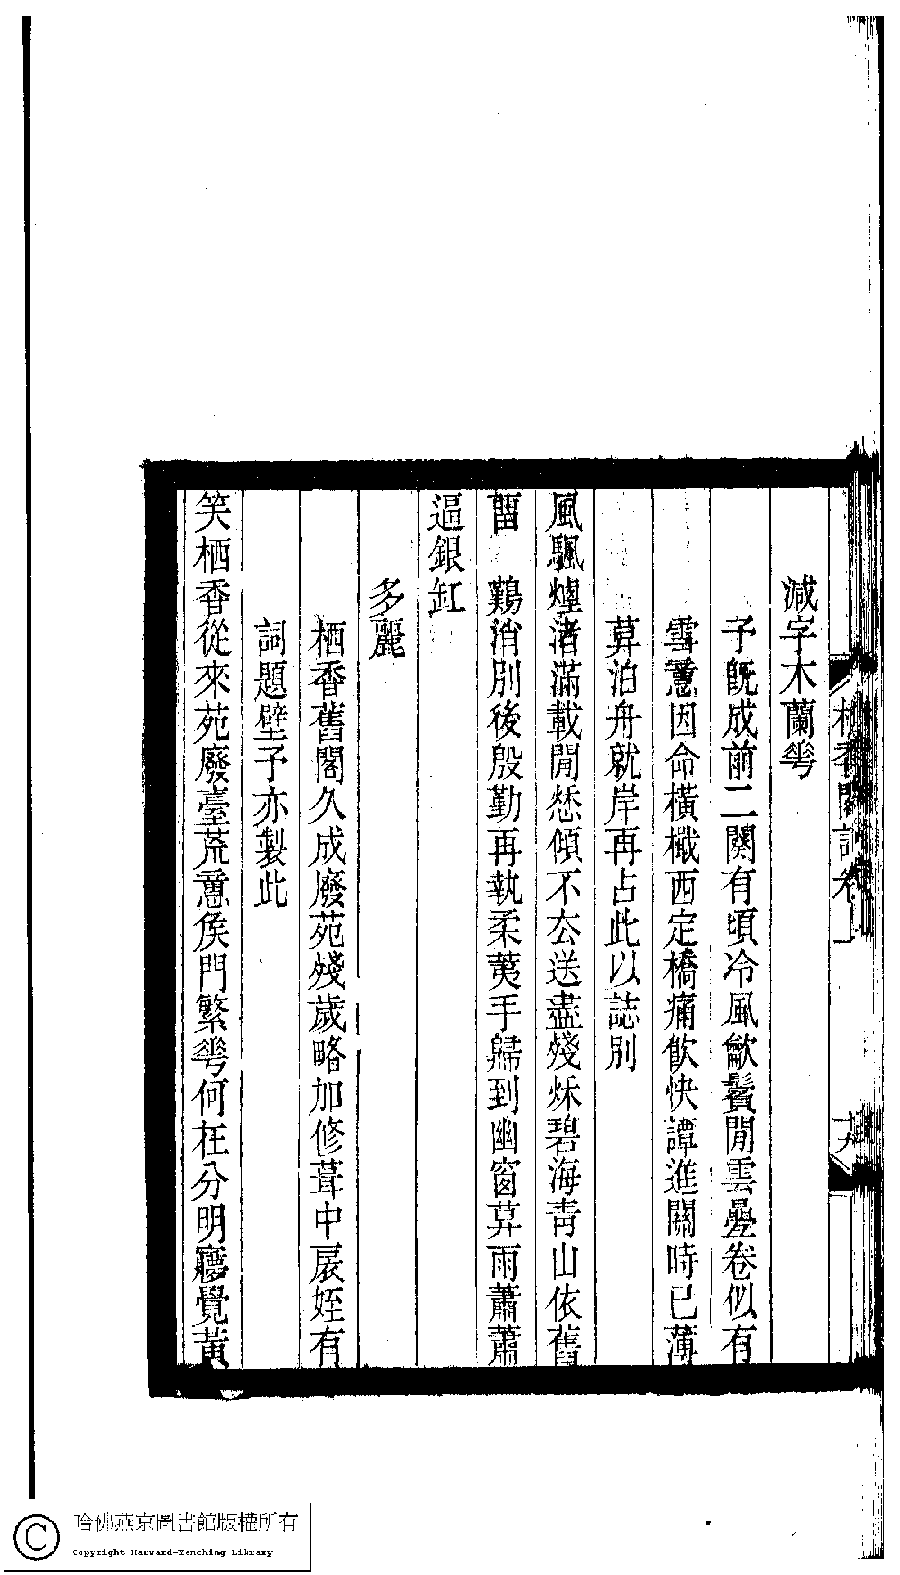 減字木蘭花
予既成前二闋有頃冷風歙鬢閒雲疊卷似有
雪意因命橫檝西定橋痛飲快譚進關時已薄
莫泊舟就岸再占此以誌別
風颿煙渚滿載閒愁傾不去送盡殘秌碧海青山依舊
畱　鷄消別後殷勤再執柔荑手歸到幽窗莫雨蕭蕭
逼銀缸
多麗
栖香舊閣久成廢苑殘歲略加修葺中展姪有
詞題壁予亦製此
笑栖香從來苑廢臺荒意矦門繁華何在分明寤覺黃
栖香閣詞卷二
十九
哈佛燕京圖書館版權所有
Copyright Harvard-Yenching Library